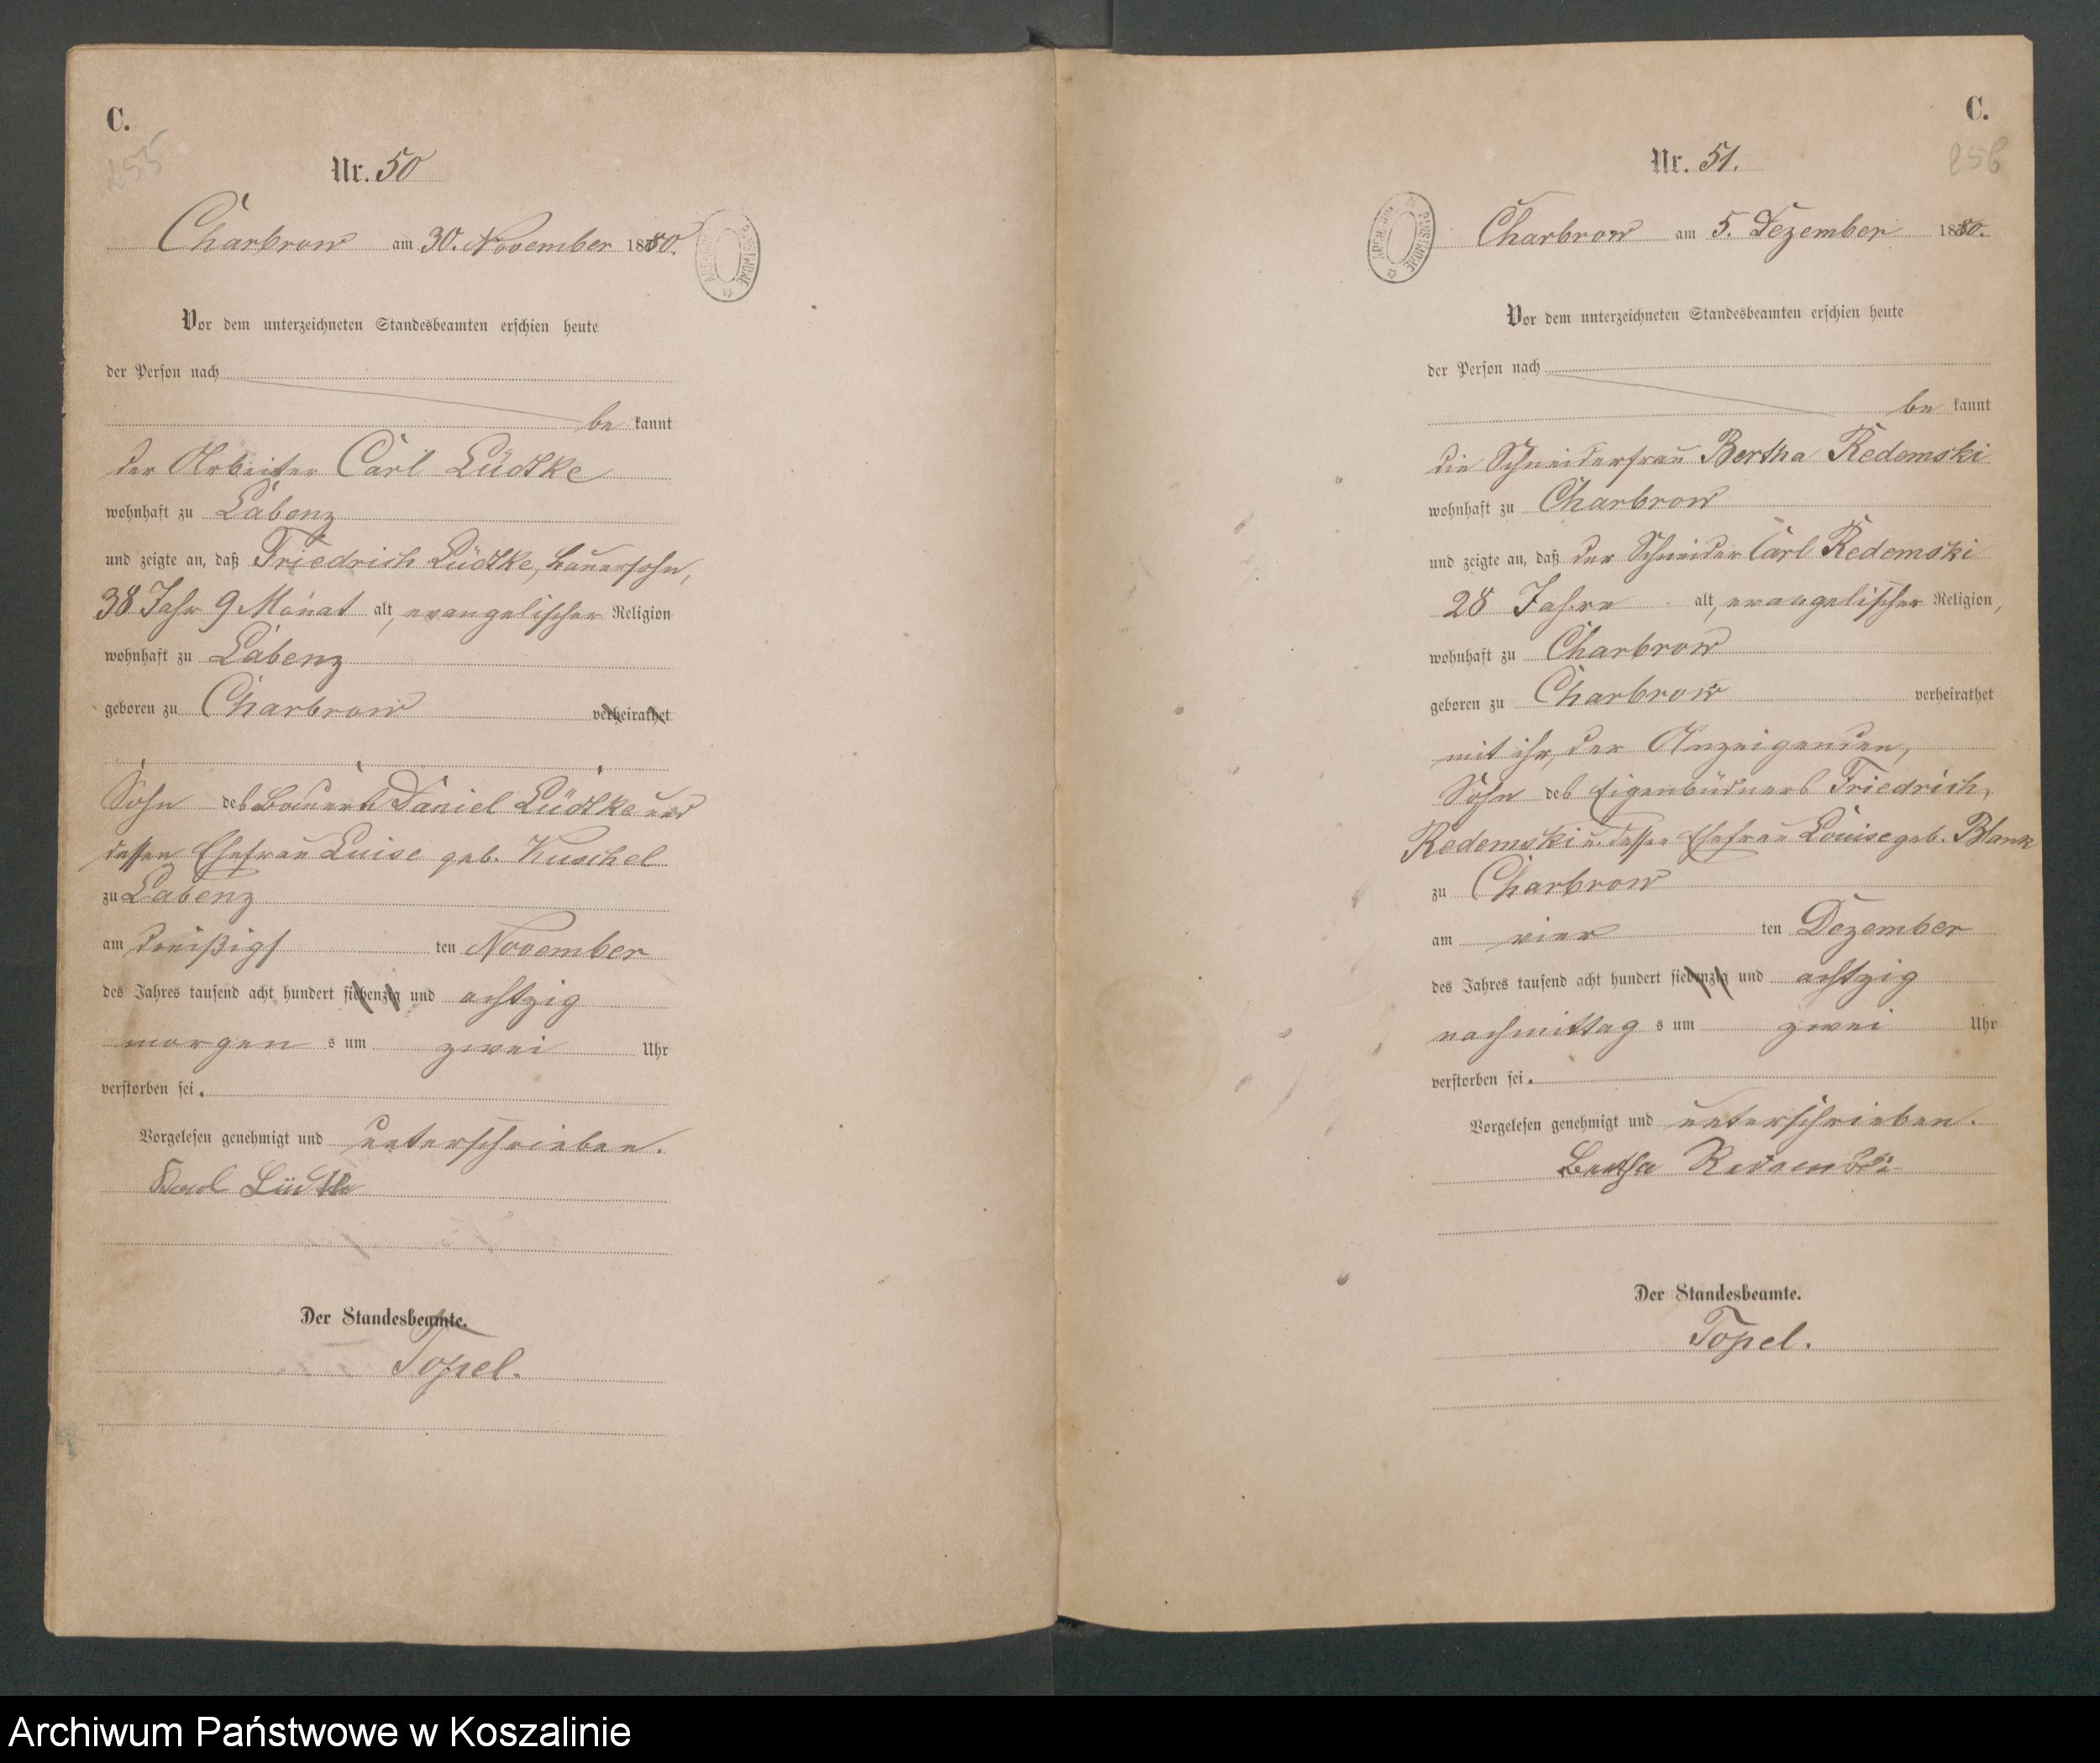 C.
255
Nr. 50
Charbrow am 30. November 1880.
Vor dem unterzeichneten Standesbeamten erschien heute
der Person nach
be kannt
der Arbeiter Carl Lüdtke
wohnhaft zu Labenz
und zeigte an, daß Friedrich Lüdtke, Bauersohn,
38 Jahr 9 Monat alt, evangelischer Religion
wohnhaft zu Labenz
geboren zu Charbrow verheirathet
Sohn des Bauern Daniel Lüdtke und
dessen Ehefrau Luise geb. Kuschel
zu Labenz
am dreißigs ten November
des Jahres tausend acht hundert siebenzig und achtzig
morgen s um zwei Uhr
verstorben sei.
Vorgelesen genehmigt und unterschrieben.
Karl Lüdtke
Der Standesbeamte.
Topel.
C.
256
Nr. 51.
Charbrow am 5. Dezember 1880.
Vor dem unterzeichneten Standesbeamten erschien heute
der Person nach
be kannt
die Schneiderfrau Bertha Redemski
wohnhaft zu Charbrow
und zeigte an, daß der Schneider Carl Redemski
28 Jahre alt, evangelischer Religion,
wohnhaft zu Charbrow
geboren zu Charbrow verheirathet
mit ihr, der Anzeigenden,
Sohn des Eigenbüdners Friedrich
Redemski u. dessen Ehefrau Louise geb. Blank
zu Charbrow
am vier ten Dezember
des Jahres tausend acht hundert siebenzig und achtzig
nachmittag s um zwei Uhr
verstorben sei.
Vorgelesen genehmigt und unterschrieben.
Bertha Redemski
Der Standesbeamte.
Topel.
Archiwum Państwowe w Koszalinie